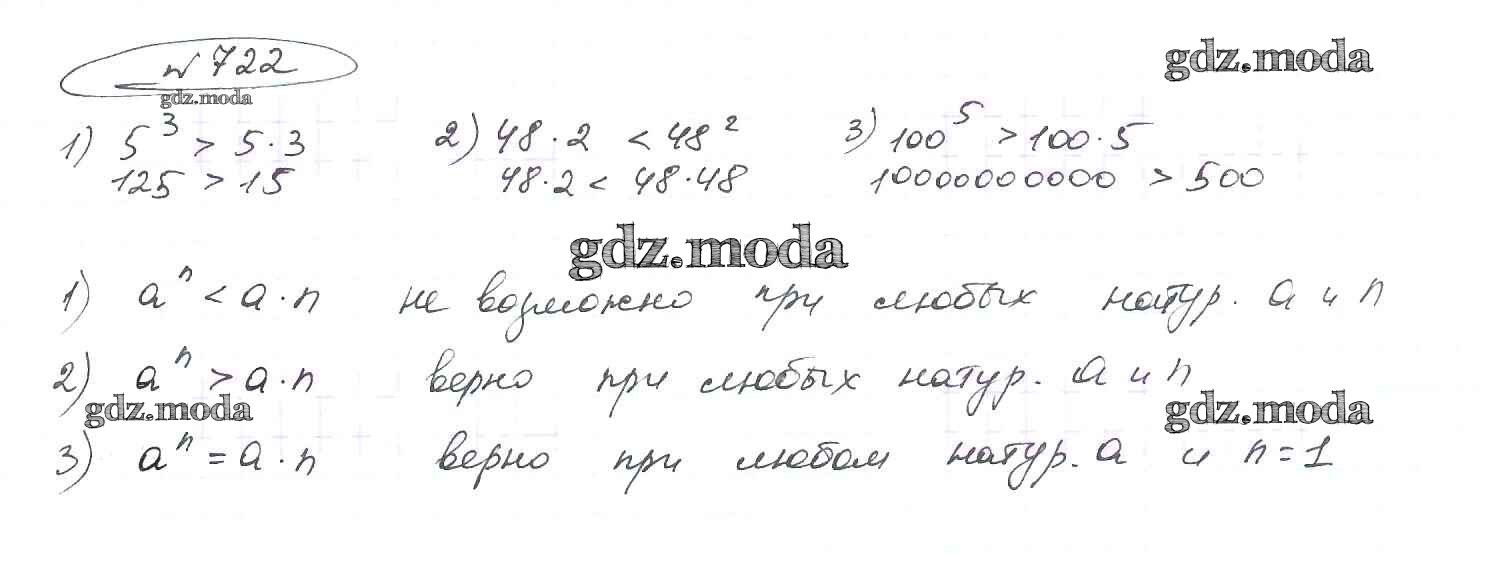 № 722
gdz.moda
gdz.moda
1) 5³ > 5·3 2) 48·2 < 48² 3) 100⁵ > 100·5
125 > 15 48·2 < 48·48 10000000000 > 500
gdz.moda
1) aⁿ < a·n не возможно при любых натур. a и n
2) aⁿ > a·n верно при любых натур. a и n
gdz.moda
gdz.moda
3) aⁿ = a·n верно при любом натур. a и n = 1